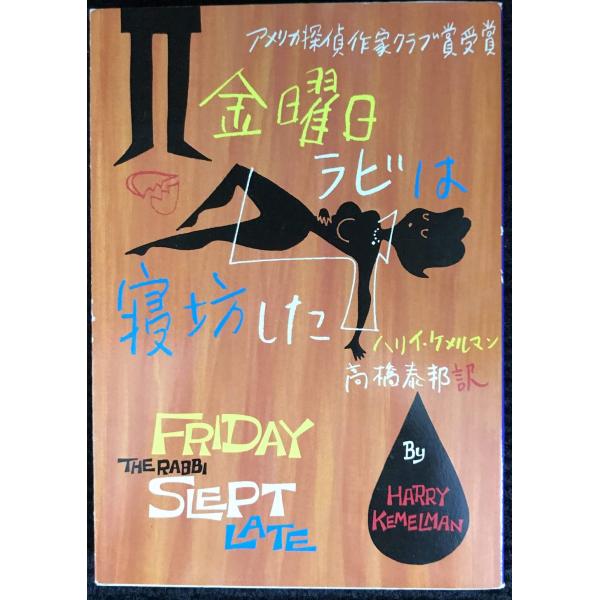 アメリカ探偵作家クラブ賞受賞
金曜日
ラビは
寝坊した
ハリイ・ケメルマン
高橋泰邦訳
FRIDAY
THE RABBI
SLEPT
LATE
By
HARRY
KEMELMAN